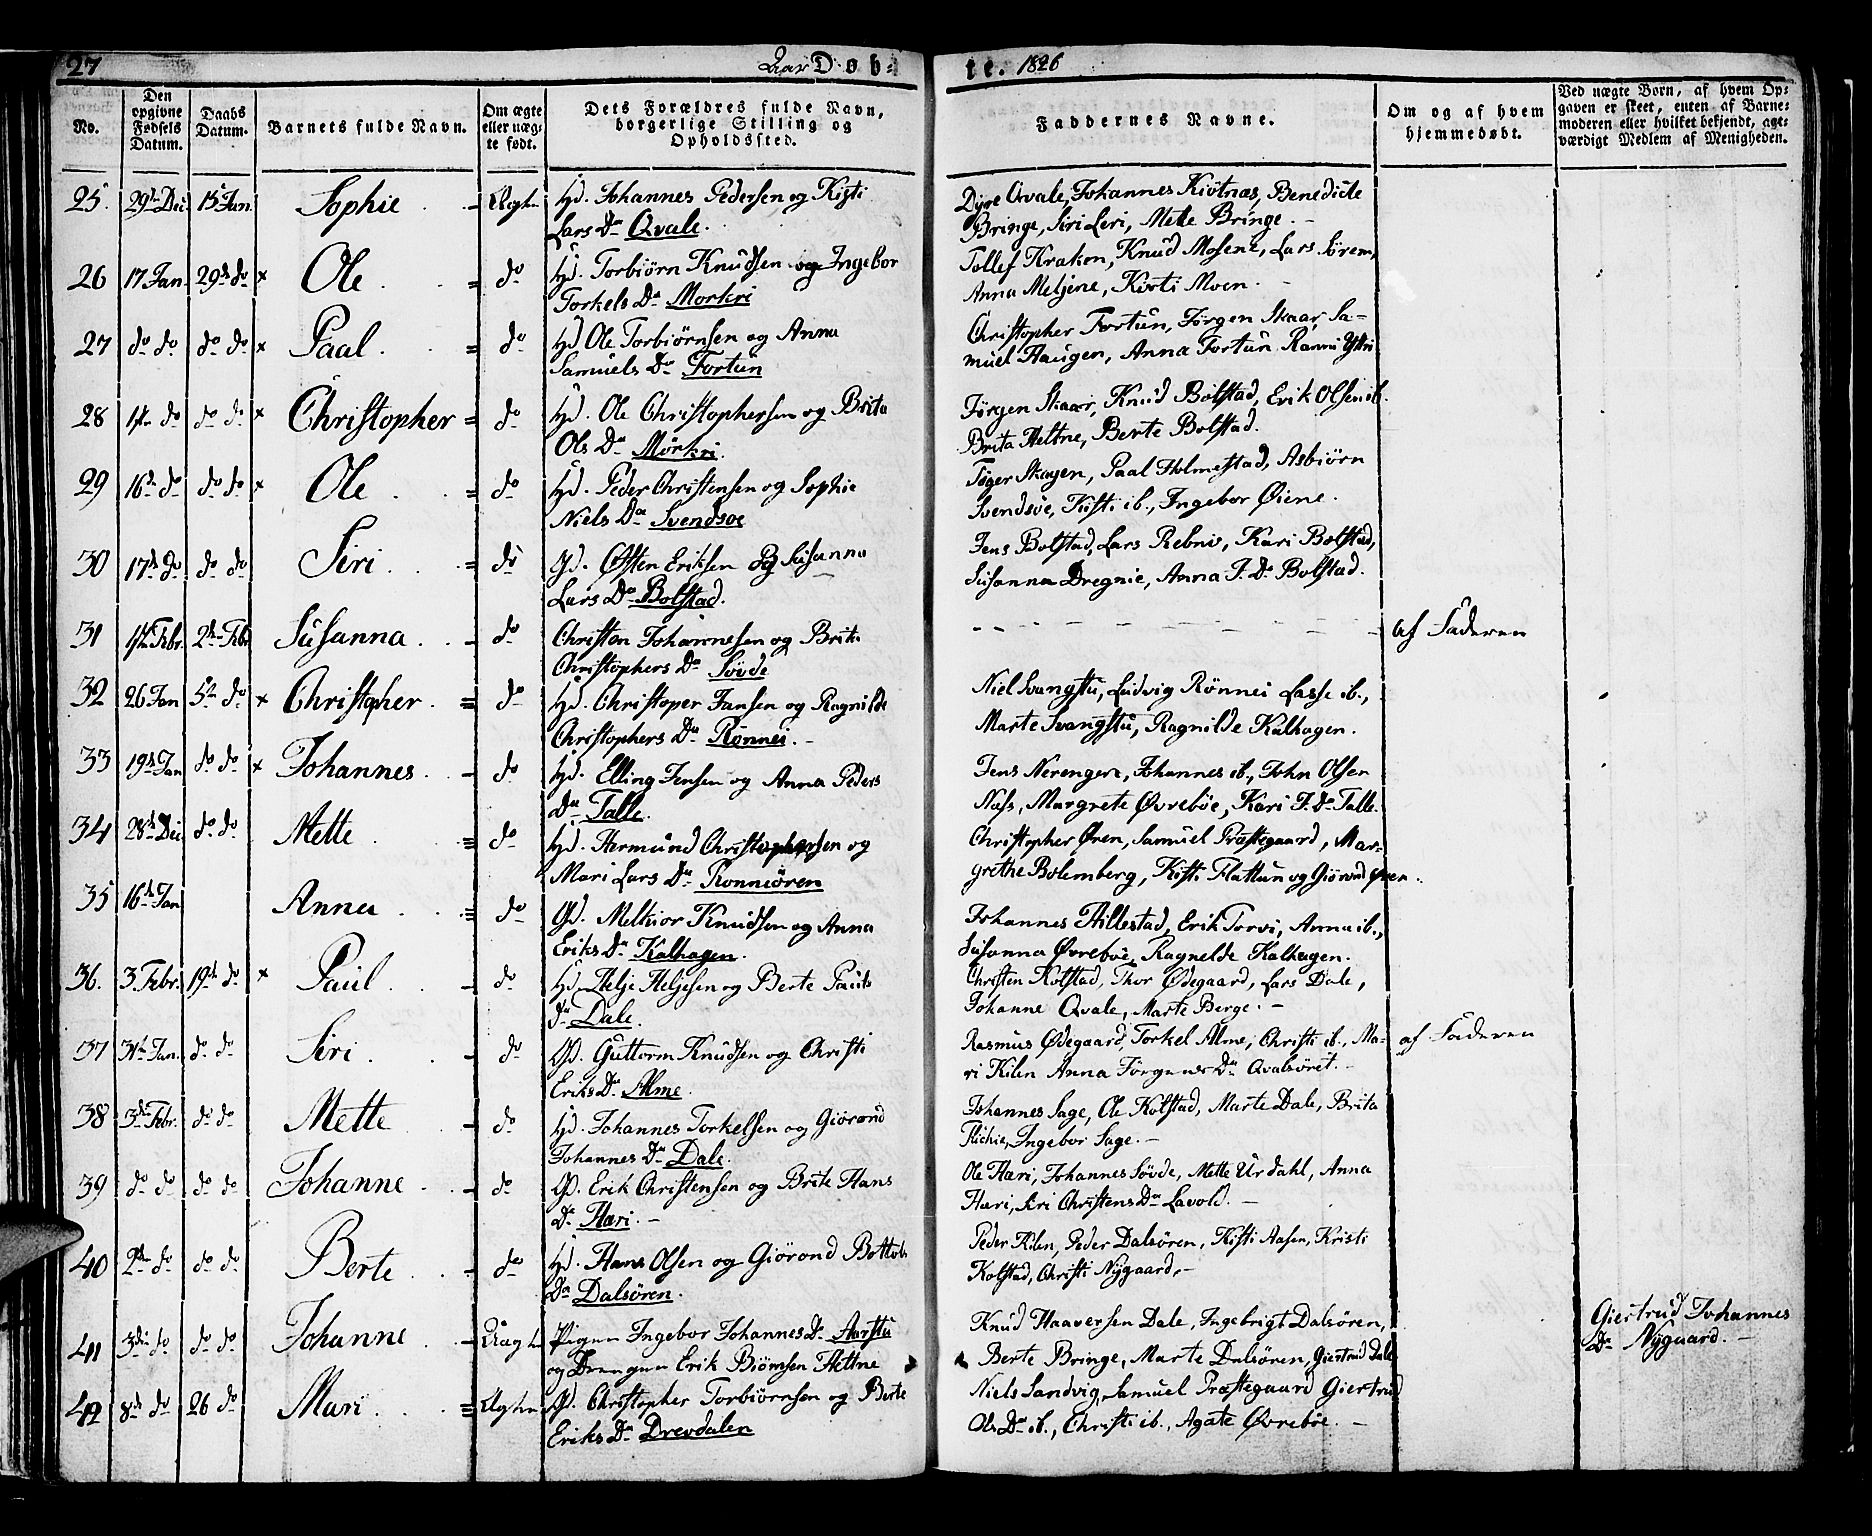 27 Aar Døb- te. 1826
No.
Den opgivne Fødsels Datum.
Daabs Datum.
Barnets fulde Navn.
Om ægte eller uægte født.
Dets Forældres fulde Navn, borgerlige Stilling og Opholdssted.
Faddernes Navne.
Om og af hvem hjemmedøbt.
Ved uægte Børn, af hvem Opgaven er skeet, enten af Barnemoderen eller hvilket bekjendt, agtværdigt Medlem af Menigheden.
25. 29de Dec. 15 Jan. Sophie Ægte Hd. Johannes Pedersen og Kisti
Lars Dr Qvale.
Dyre Qvale, Johannes Kiøtnæs, Benedicte
Bringe, Siri Leri, Mette Bringe.
26 17 Jan. 29de do × Ole do Hd. Torbiørn Knudsen og Ingebor
Torkels Dr Morkri
Tollef Kraken, Knud Mosene, Lars Sørem,
Anna Meljene, Kirsti Moen.
27 do do do do × Paal do Hd Ole Torbiørnsen og Anna
Samuels Dr Fortun
Christopher Fortun, Jørgen Skaar, Sa-
muel Haugen, Anna Fortun Ranni Yttri
28 do do do × Christopher do Hd. Ole Christophersen og Brita
Ols Dr Mørkri.
Jørgen Skaar, Knud Bolstad, Erik Olsen ib.
Brita Heltne, Berte Bolstad.
29 16de do do do × Ole do Hd. Peder Christensen og Sophie
Niels Dr Svendsøe
Paal Holmestad, Asbiørn
Svendsøe, Kisti ib., Ingebor Øiene.
30 17de do do do Siri do Gd. Østen Eriksen og Susanna
Lars Dr Bolstad.
Jens Bolstad, Lars Rebni, Kari Bolstad,
Susanna Dregnie, Anna J. Dr Bolstad.
31 Febr. 2den Febr Susanna do Christen Johannesen og Brita
Christophers Dr Søvde
af Faderen
32 26 Jan 5te do × Christopher do Hd. Christoper Jansen og Ragnilde
Christophers Dr Rønnei.
Niel Svangstu, Ludvig Rønnei Lasse ib.,
Marte Svangstu, Ragnilde Kalhagen.
33 19de Jan do do × Johannes do Hd. Elling Jensen og Anna Peders
Dr Talle.
Jens Nerengen, Johannes ib., John Olsen
Næss, Margrete Øvrebøe, Kari J. Dr Talle.
34 28de Dec do do Mette do Hd. Hermund Christophersen og
Mari Lars Dr Rønneiøren
Christopher Øren, Samuel Præstegaard, Mar-
grethe Bolemberg, Kisti Flattun og Giørond Øren.
35 16de Jan Anna do Gd. Melkior Knudsen og Anna
Eriks Dr Kalhagen.
Johannes Hillestad, Erik Torvi, Anna ib.,
Susanna Øvrebøe, Ragnelde Kalhagen.
36. 3. Febr. 19de do × Paul do Hd. Helje Heljesen og Berte Pauls
dr Dale.
Christen Kolstad, Thor Ødegaard, Lars Dale,
Johanne Qvale, Marte Berge.
37 31te Jan. do do Siri do Gd. Guttorm Knudsen og Christi
Eriks Dr Alme.
Rasmus Ødegaard, Torkel Alme, Christi ib., Ma-
ri Kilen Anna Jørgens Dr Qvalsøret.
af Faderen
38 3die Febr. do do Mette do Hd. Johannes Torkelsen og Giørond
Johannes Dr Dale.
Johannes Sage, Ole Kolstad, Marte Dale, Brita
Ingebor Sage.
39 do do do do Johanne do Gd. Erik Christensen og Brite Hans
Dr Hæri.
Ole Hæri, Johannes Søvde, Mette Urdahl, Anna
Hæri, Siri Christens Dr Lavold.
40 2den do do do Berte do Hd. Hans Olsen og Giørond Bottols
Dr Dalsøren.
Peder Kilen, Peder Dalsøren, Kisti Aasen, Kristi
Kolstad, Christi Nÿgaard.
41 3die do do do Johanne Uægte Pigen Ingebor Johannes Dr Aarstu
og Drengen Erik Biørnsen Hettne
Knud Haaversen Dale, Ingebrigt Dalsøren,
Berte Bringe, Marte Dalsøren, Giertrud Dale
Giertrud Johannes
Dr Nÿgaard.
42 8de do 26 do Mari Ægte Gd. Christopher Torbiørnsen og Berte
Eriks Dr Drevdalen
Niels Sandvig, Samuel Præstegaard Giertrud
Ols Dr ib., Christi ib., Agate Øvrebøe.